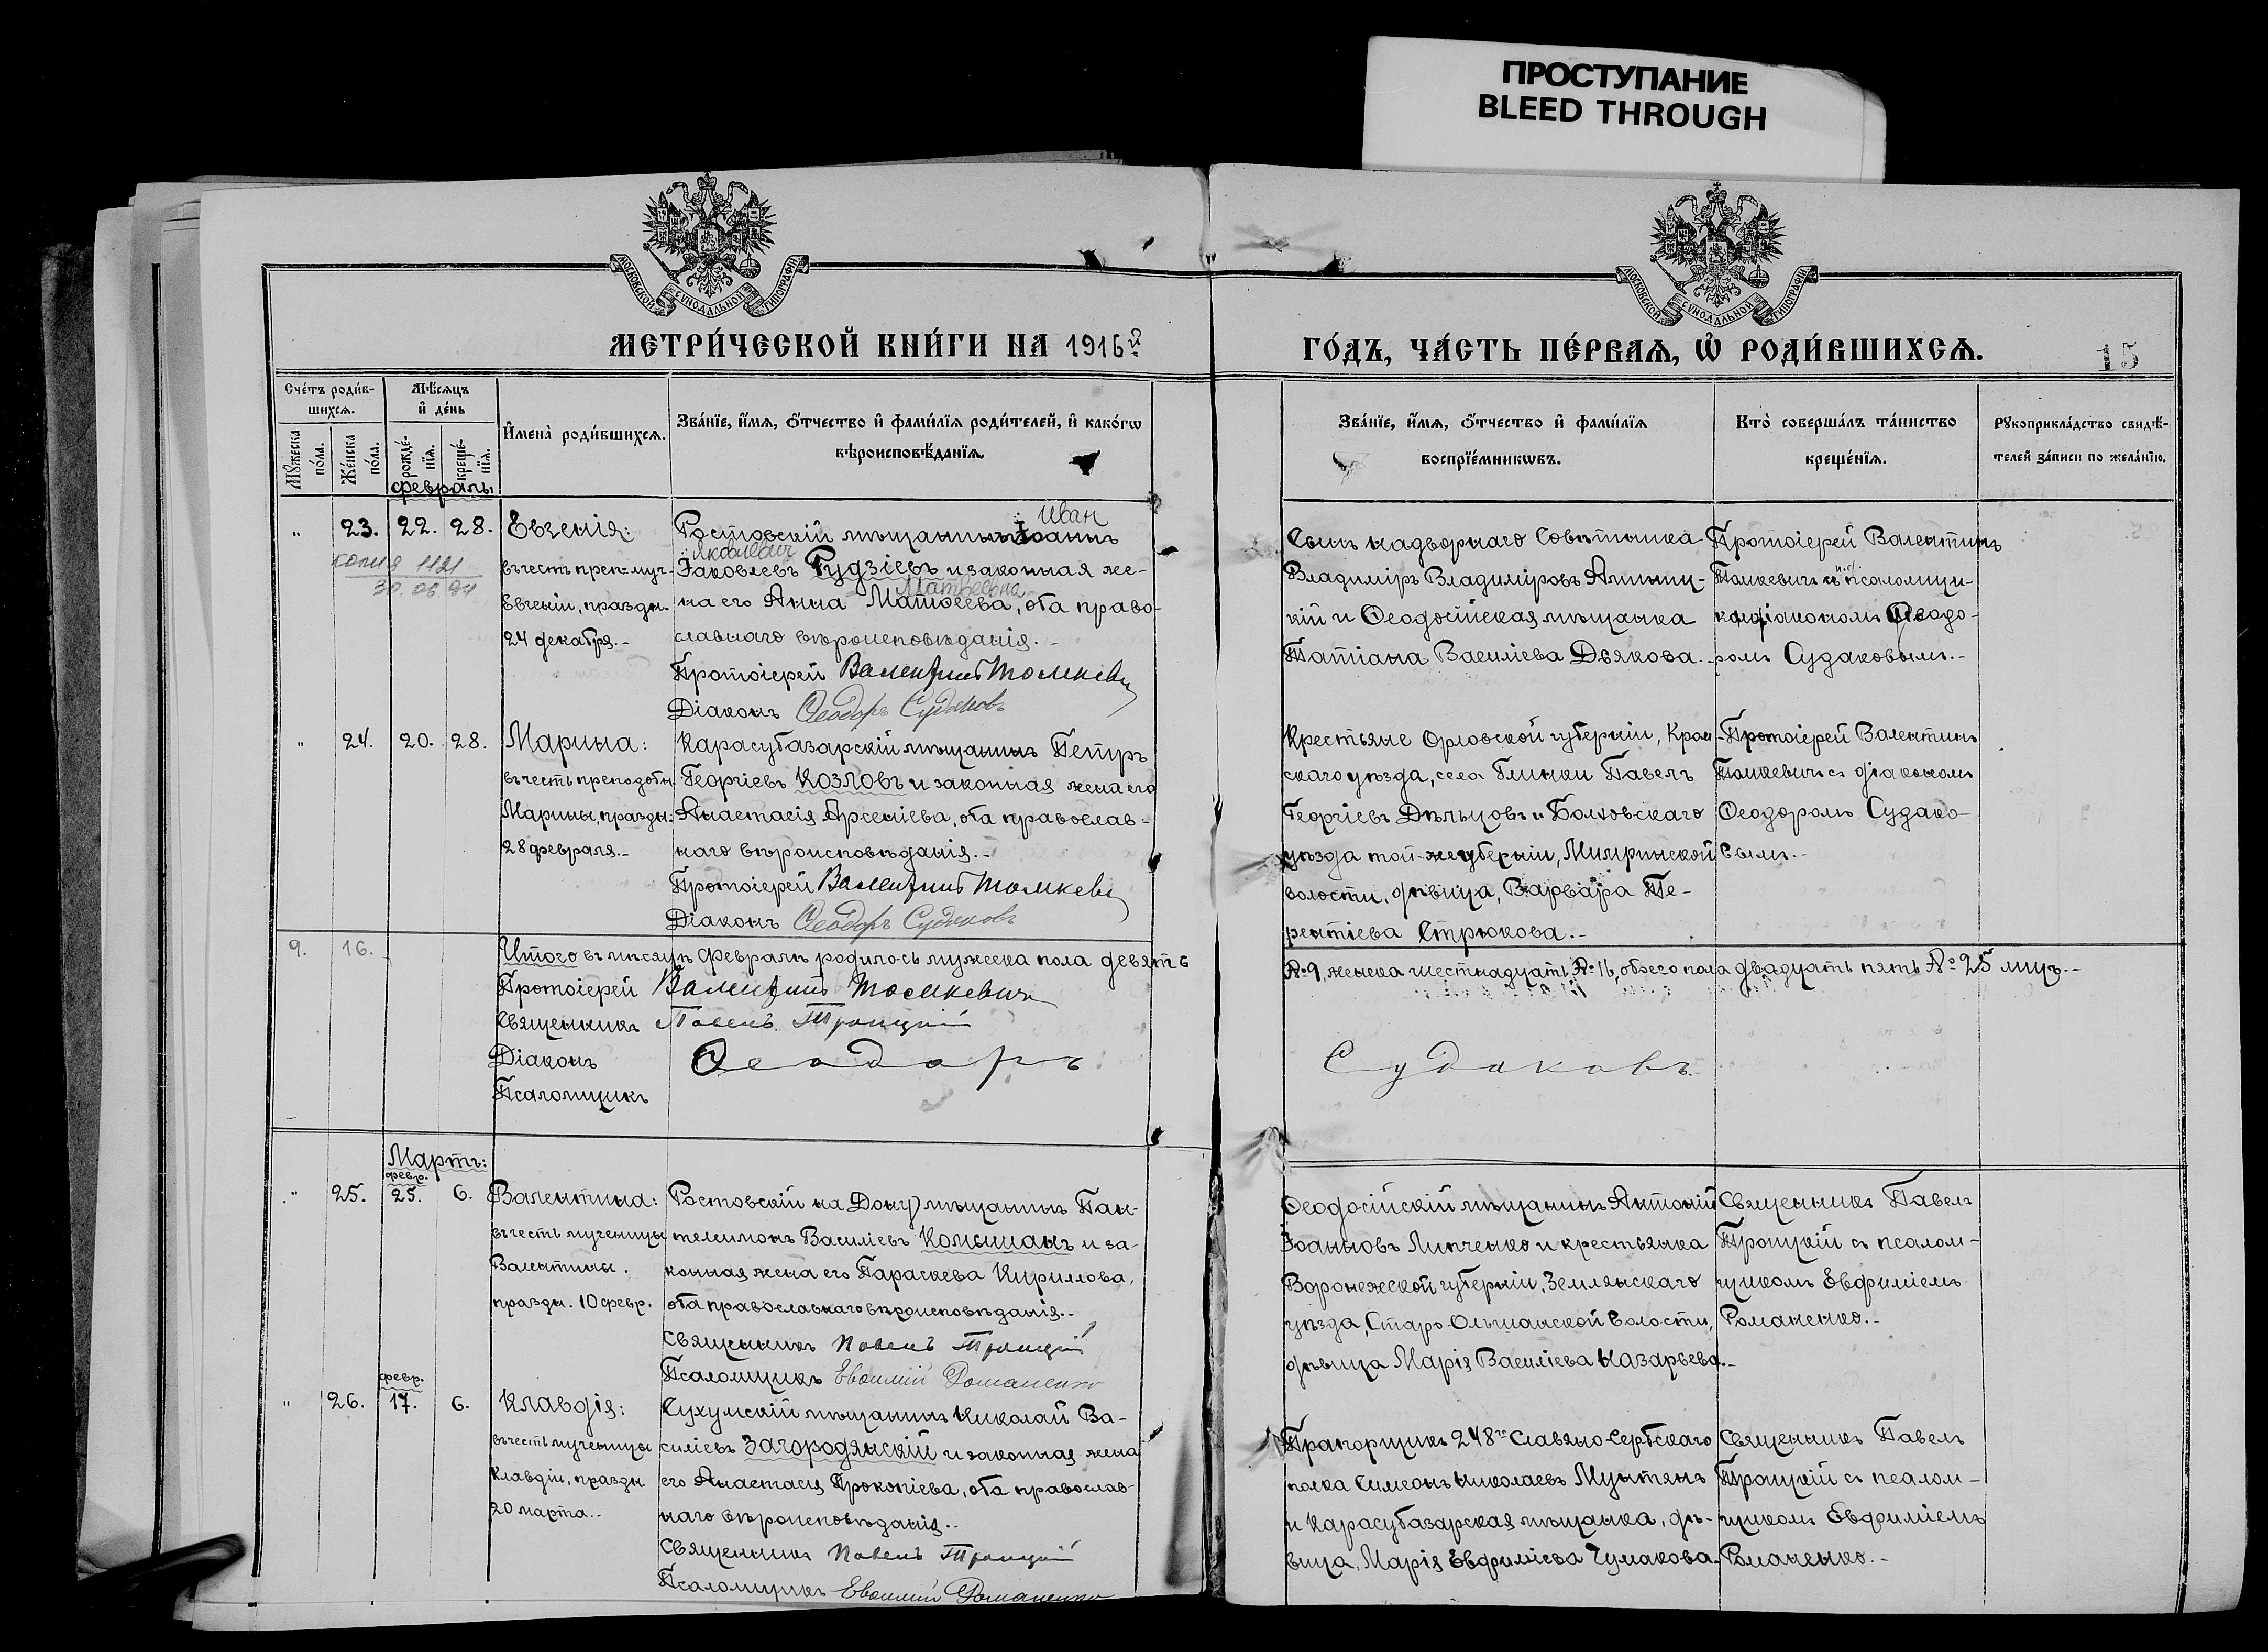 ПРОСТУПАНИЕ
BLEED THROUGH
МОСКОВСКОЙ СѴНОДАЛЬНОЙ ТИПОГРАФІИ
МОСКОВСКОЙ СѴНОДАЛЬНОЙ ТИПОГРАФІИ
МЕТРИ́ЧЕСКОЙ КНИ́ГИ НА 1916й
ГО́ДЪ, ЧА́СТЬ ПЕ́РВАѦ, Ѡ҆ РОДИ́ВШИХСѦ.
15
Сче́тъ роди́в-
шихсѧ.
Мꙋ́жеска
по́ла.
Же́нска
по́ла.
Мѣ́сѧцъ
и҆ де́нь
рожде́-
нїѧ.
креще́-
нїѧ.
И҆мена̀ роди́вшихсѧ.
Зва́нїе, и҆́мѧ, ѻ҆́тчество и҆ фами́лїѧ роди́телей, и҆ како́гѡ
вѣроисповѣ́данїѧ.
Зва́нїе, и҆́мѧ, ѻ҆́тчество и҆ фами́лїѧ
воспрїе́мникѡвъ.
Кто̀ соверша́лъ та́инство
креще́нїѧ.
Рꙋкоприкла́дство свидѣ́-
телей за́писи по жела́нїю.
февраль
" 23. 22. 28.
копия 1121
30.06.94
Евгенія:
въ честь преп-муч.
Евгеніи, праздн.
24 декабря.-
Иван
Ростовскій мѣщанинъ Іоаннъ
Яковлевич
Іаковлевъ Рудзіевъ и законная же-
Матвеевна
на его Анна Матѳеева, оба право-
славнаго вѣроисповѣданія.-
Протоіерей Валентинъ Томкевич
Діаконъ Ѳеодоръ Судаковъ
Сынъ надворнаго Совѣтника
Владиміръ Владиміровъ
кій и Ѳеодосійская мѣщанка
Татіана Василіева Дьякова.-
Протоіерей Валентинъ
Томкевичъ с псаломщи-
Ѳеодо-
ромъ Судаковымъ.-
" 24. 20. 28.
Марина:
въ честь преподобн.
Марины, праздн.
28 февраля.-
Карасубазарскій мѣщанинъ Петръ
Георгіевъ Козловъ и законная жена его
Анастасія Арсеніева, оба православ-
наго вѣроисповѣданія.-
Протоіерей Валентинъ Томкевич
Діаконъ Ѳеодоръ Судаковъ
Крестьяне Орловской губерніи, Кром-
скаго уѣзда, села Глинки Павелъ
Георгіевъ Дѣльцовъ и Болховскаго
уѣзда той-же губерніи,
волости, дѣвица, Варвара Те-
рентіева Стрюкова.-
Протоіерей Валентинъ
Томкевичъ съ діакономъ
Ѳеодоромъ Судако-
вымъ.-
9. 16.
Итого въ мѣсяцѣ Февралѣ родилось мужеска пола девять
№ 9, женска шестнадцать № 16, обоего пола двадцать пять № 25 лицъ.-
Протоіерей Валентинъ Томкевичъ
Священникъ Павелъ Троицкій
Діаконъ Ѳеодоръ Судаковъ
Псаломщикъ
Мартъ:
февр.
" 25. 25. 6.
Валентина:
въ честь мученицы
Валентины.
праздн. 10 февр.
Ростовскій на Дону мѣщанинъ Пан-
телимонъ Василіевъ Комшанъ и за-
конная жена его Параскева Кириллова,
оба православнаго вѣроисповѣданія.-
Священникъ Павелъ Троицкій
Псаломщикъ Евѳимій Романенко
Ѳеодосійскій мѣщанинъ Антоній
Іоанновъ Липченко и крестьянка
Воронежской губерніи, Землянскаго
уѣзда, Старо-Ольшанской волости,
дѣвица Марія Василіева Назарьева.-
Священникъ Павелъ
Троицкій съ псалом-
щикомъ Евфиміемъ
Романенко.-
февр.
" 26. 17. 6.
Клавдія:
въ честь мученицы
Клавдіи, праздн.
20 марта.-
Сухумскій мѣщанинъ Николай Ва-
силіевъ Загородянскій и законная жена
его Анастасія Прокопіева, оба православ-
наго вѣроисповѣданія.-
Священникъ Павелъ Троицкій
Псаломщикъ Евѳимій Романенко
Прапорщикъ 248го Славяно-Сербскаго
полка Симеонъ Николаевъ Мунтянъ
и Карасубазарская мѣщанка, дѣ-
вица, Марія Евфиміева Чумакова.-
Священникъ Павелъ
Троицкій съ псалом-
щикомъ Евфиміемъ
Романенко.-